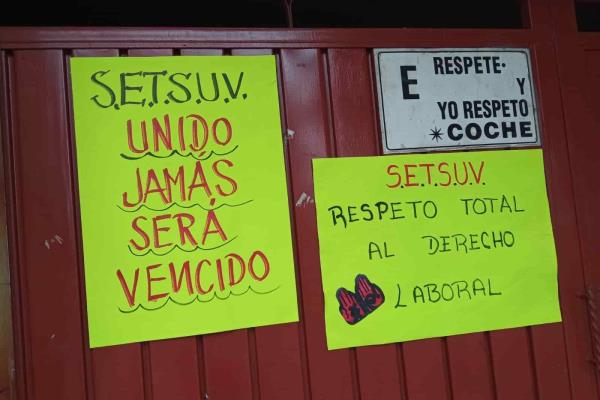 S.E.T.S.U.V.
UNIDO
JAMÁS
SERÁ
VENCIDO
E RESPETE.
Y
YO RESPETO
*COCHE
S.E.T.S.U.V.
RESPETO TOTAL
AL DERECHO
LABORAL